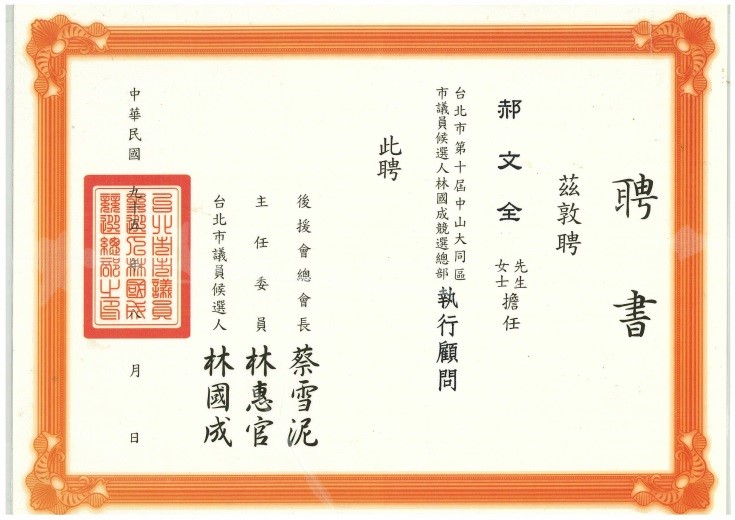 聘書
茲敦聘
郝文全 先生 女士 擔任
台北市第十屆中山大同區
市議員候選人林國成競選總部 執行顧問
此聘
後援會總會長 蔡雪泥
主任委員 林惠官
台北市議員候選人 林國成
中華民國九十五年 月 日
台北市市議員
候選人林國成
競選總部之印